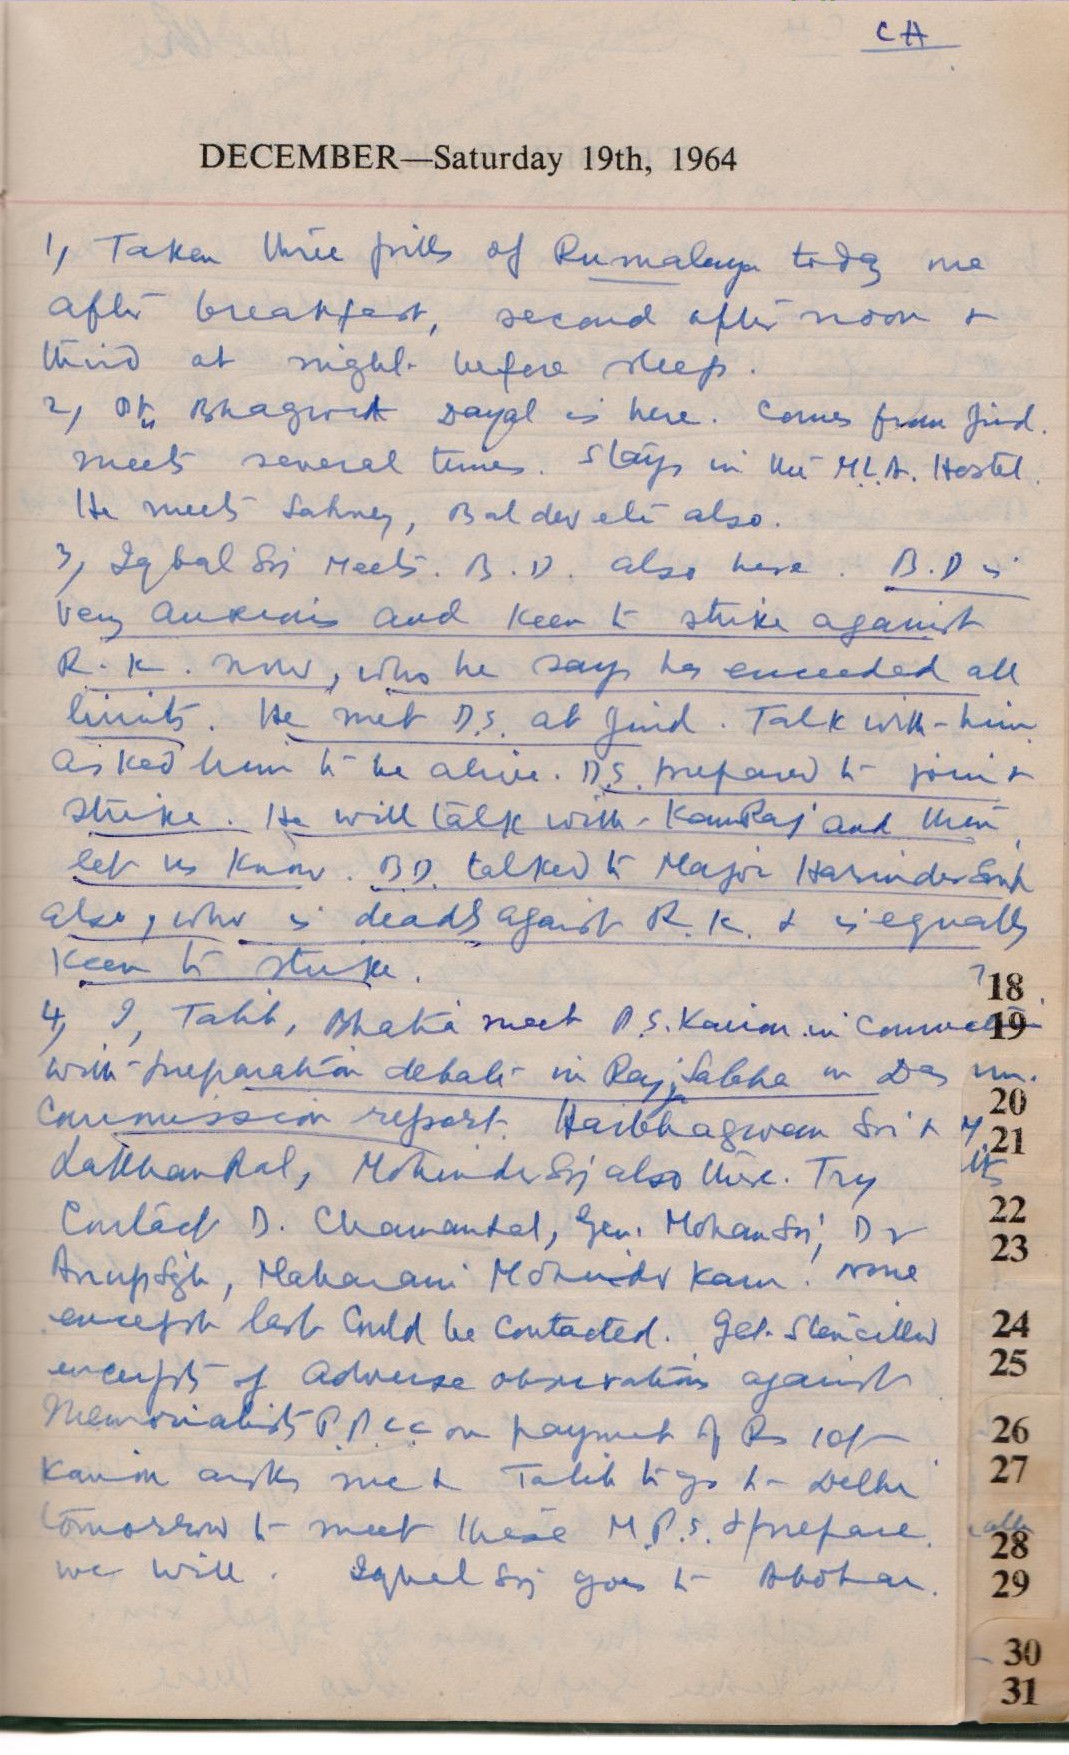 CH
DECEMBER—Saturday 19th, 1964
1, Taken three pills of Rumalaya today one
after breakfast, second after noon &
third at night before sleep.
2, Pt. Bhagwat Dayal is here. Comes from Jind.
meets several times. Stays in the M.L.A. Hostel.
He meets Sahney, Baldev etc also.
3, Iqbal Sij Meets. B.D. also here. B.D is
very anxious and keen to strike against
R.K. now, who he says has exceeded all
limits. He met D.S. at Jind. Talk with him
asked him to be alive. D.S. prepared to join &
strike. He will talk with KamRaj and then
let us know. BD. talked to Major Harinder Singh
also, who is deadly against R.K. & is equally
keen to strike.
4, I, Talib, Bhatia meet P.S. Kairon in Connection
with preparation debate in Raj Sabha on Das
Commission report. Haibhagwan Sij &
Lakkhanpal, Mohinder Sij also there. Try
Contact D. Chamanlal, Gen. Mohan Sij, Dr
Anup Sgh, Maharani Mohinder Kaur. None
except last Could be Contacted. Get Stencilled
excerpts of adverse observations against
Memorialists P.P.C.C on payment of Rs 10/-
Kairon asks me & Talib to go to Delhi
tomorrow to meet these M.P.s. & prepare.
we will. Iqbal Sij goes to Abohar.
18
19
20
21
22
23
24
25
26
27
28
29
30
31